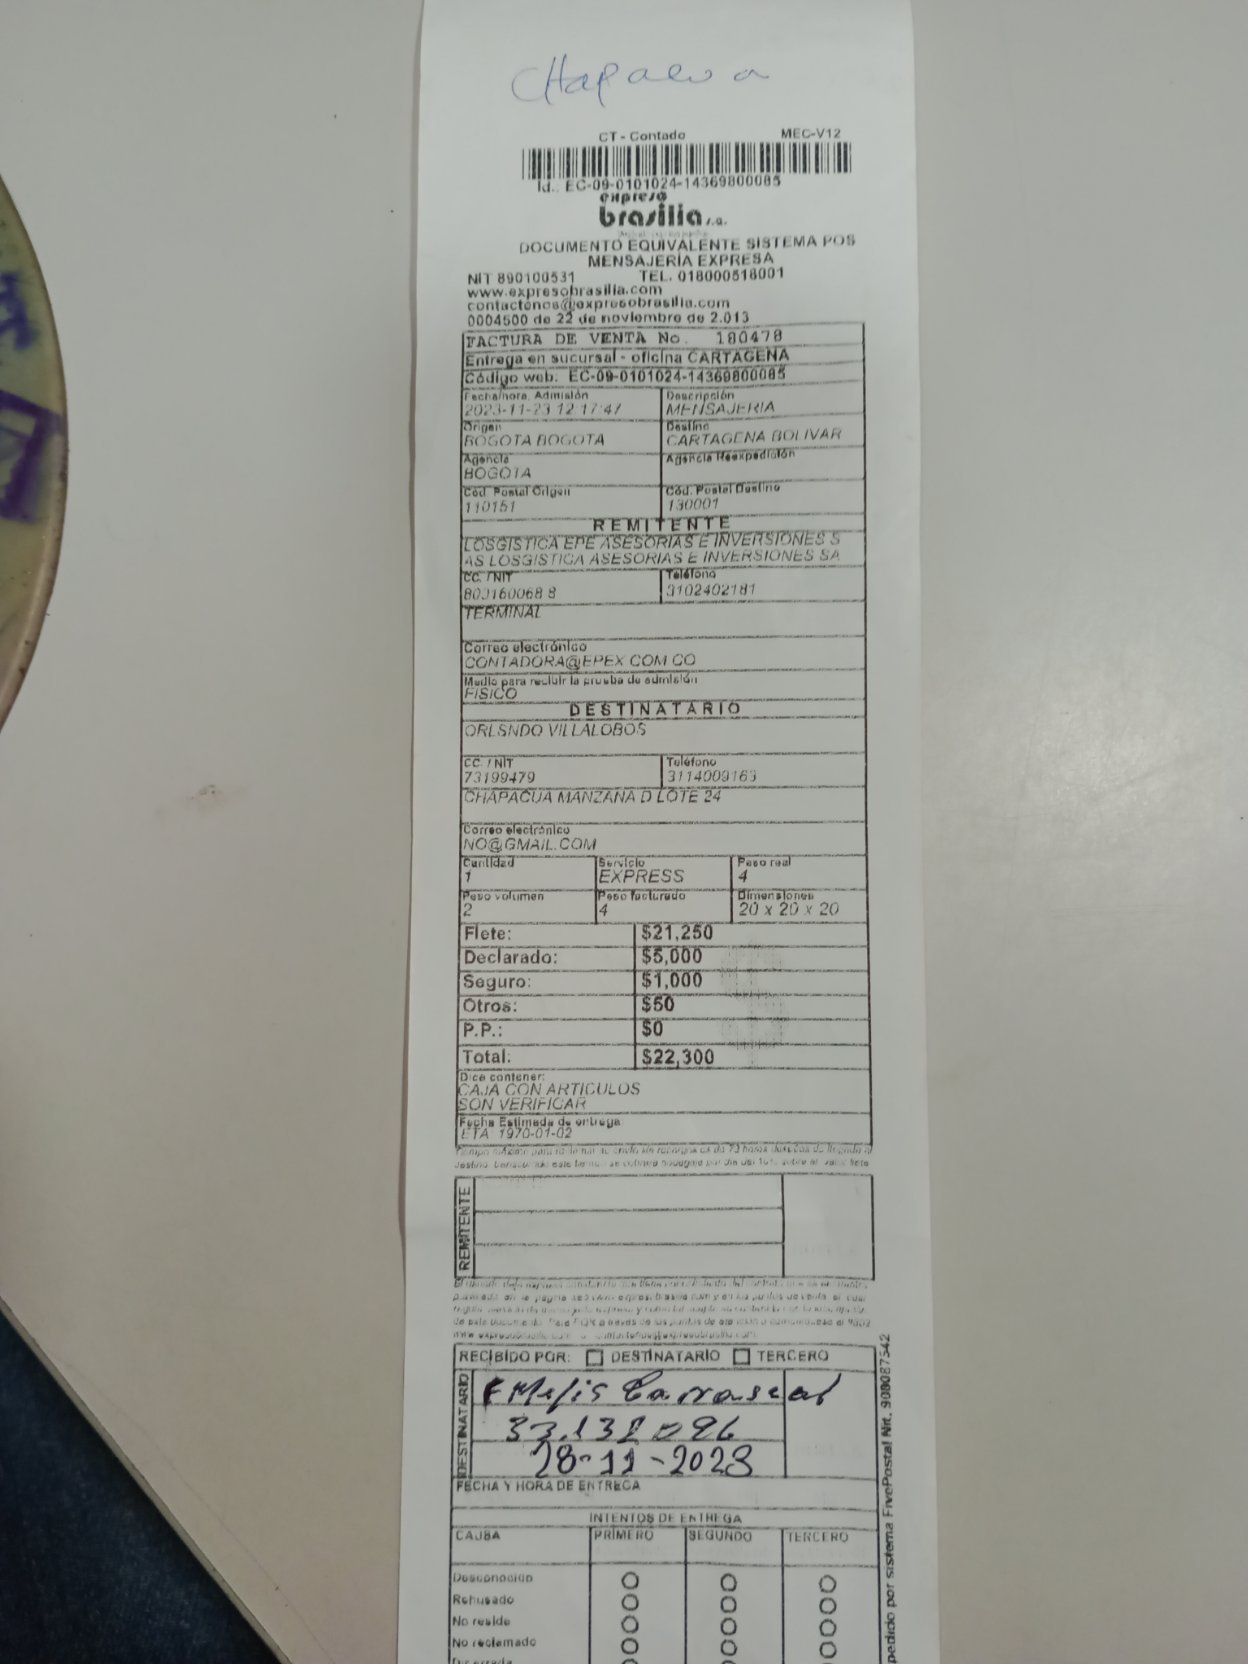 CT - Contado MEC-V12
Id.: EC-09-0101024-14369800085
expreso
brasilia s.a.
DOCUMENTO EQUIVALENTE SISTEMA POS
MENSAJERÍA EXPRESA
NIT 890100531 TEL. 018000518001
www.expresobrasilia.com
contactenos@expresobrasilia.com
0004500 de 22 de noviembre de 2.013
FACTURA DE VENTA No. 180478
Entrega en sucursal - oficina CARTAGENA
Código web: EC-09-0101024-14369800085
Fecha/hora. Admisión Descripción
2023-11-23 12:17:47 MENSAJERIA
Origen Destino
BOGOTA BOGOTA CARTAGENA BOLIVAR
Agencia Agencia Reexpedición
BOGOTA
Cód. Postal Origen Cód. Postal Destino
110151 130001
REMITENTE
LOSGISTICA EPE ASESORIAS E INVERSIONES S
AS LOSGISTICA ASESORIAS E INVERSIONES SA
CC. / NIT Teléfono
3102402181
TERMINAL
Correo electrónico
CONTADORA@EPEX.COM.CO
Medio para recibir la prueba de admisión
FISICO
DESTINATARIO
ORLSNDO VILLALOBOS
CC. / NIT Teléfono
73199479 3114009163
CHAPACUA MANZANA D LOTE 24
Correo electrónico
NO@GMAIL.COM
Cantidad Servicio Peso real
1 EXPRESS 4
Peso volumen Peso facturado Dimensiones
2 4 20 x 20 x 20
Flete: $21,250
Declarado: $5,000
Seguro: $1,000
Otros: $50
P.P.: $0
Total: $22,300
Dice contener:
CAJA CON ARTICULOS
SON VERIFICAR
Fecha Estimada de entrega
ETA 1970-01-02
REMITENTE
RECIBIDO POR: DESTINATARIO TERCERO
DESTINATARIO
EMelis Carrascal
28-11-2023
FECHA Y HORA DE ENTREGA
INTENTOS DE ENTREGA
CAUSA PRIMERO SEGUNDO TERCERO
Desconocido
Rehusado
No reside
No reclamado
pedido por sistema FivePostal Nit. 908087542